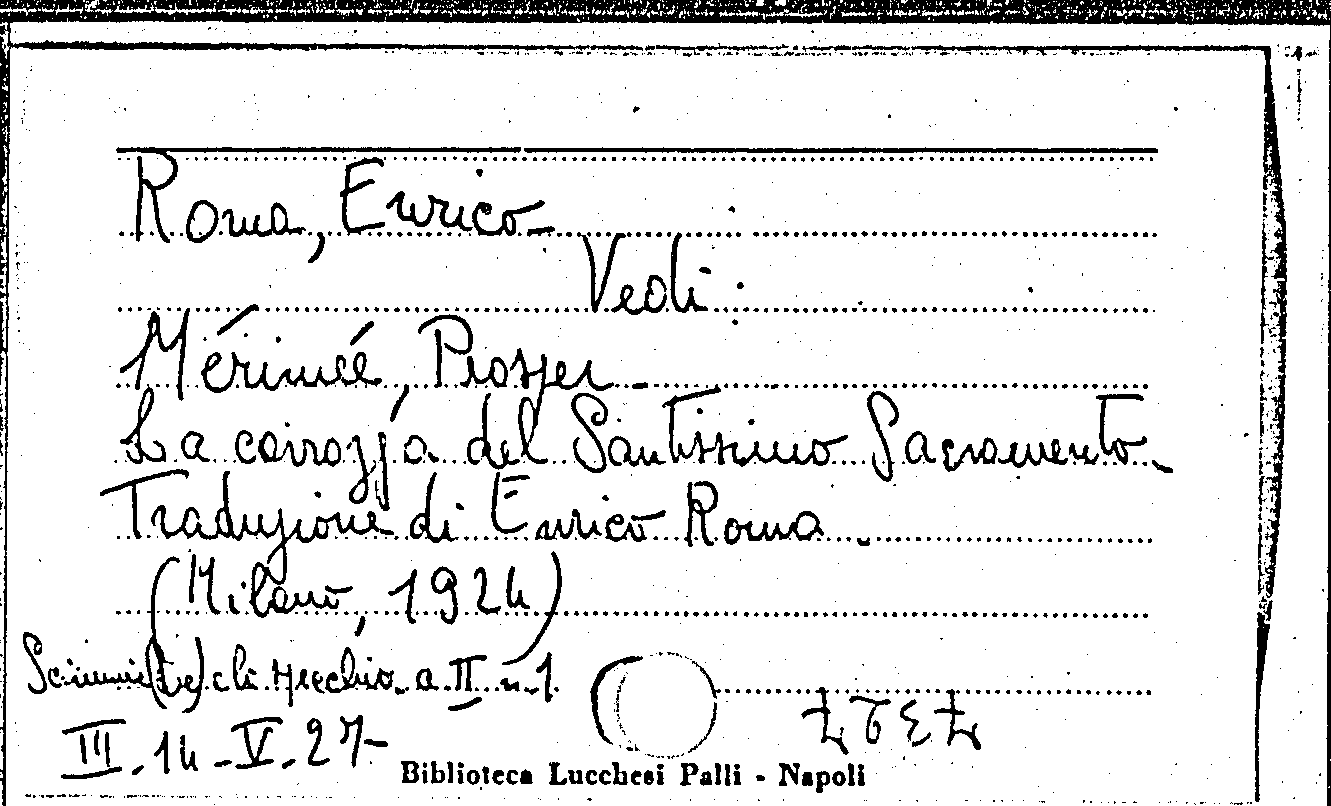 Roma, Enrico -
Vedi:
Mérimée, Prosper -
La carrozza del Santissimo Sacramento -
Traduzione di Enrico Roma.
(Milano, 1924)
Scimmie (Le) e lo specchio. a. II n. 1
III. 14 - V. 27 -
Biblioteca Lucchesi Palli - Napoli